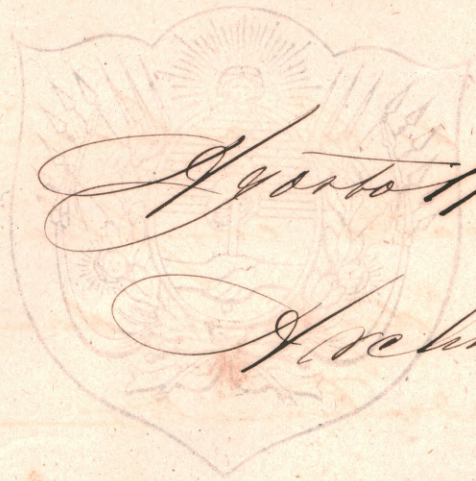 Agosto 1
Arch